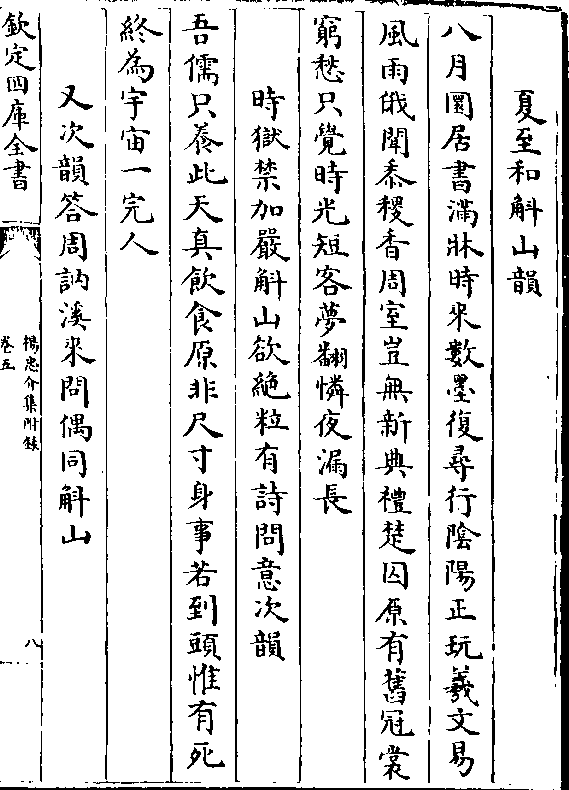 夏至和斛山韻
八月圜居書滿牀時來數墨復尋行陰陽正玩羲文易
風雨俄聞黍稷香周室豈無新典禮楚囚原有舊冠裳
窮愁只覺時光短客夢翻憐夜漏長
時獄禁加嚴斛山欲絶粒有詩問意次韻
吾儒只養此天真飲食原非尺寸身事若到頭惟有死
終為宇宙一完人
又次韻答周訥溪來問偶同斛山
欽定四庫全書
楊忠介集附録
卷五
八